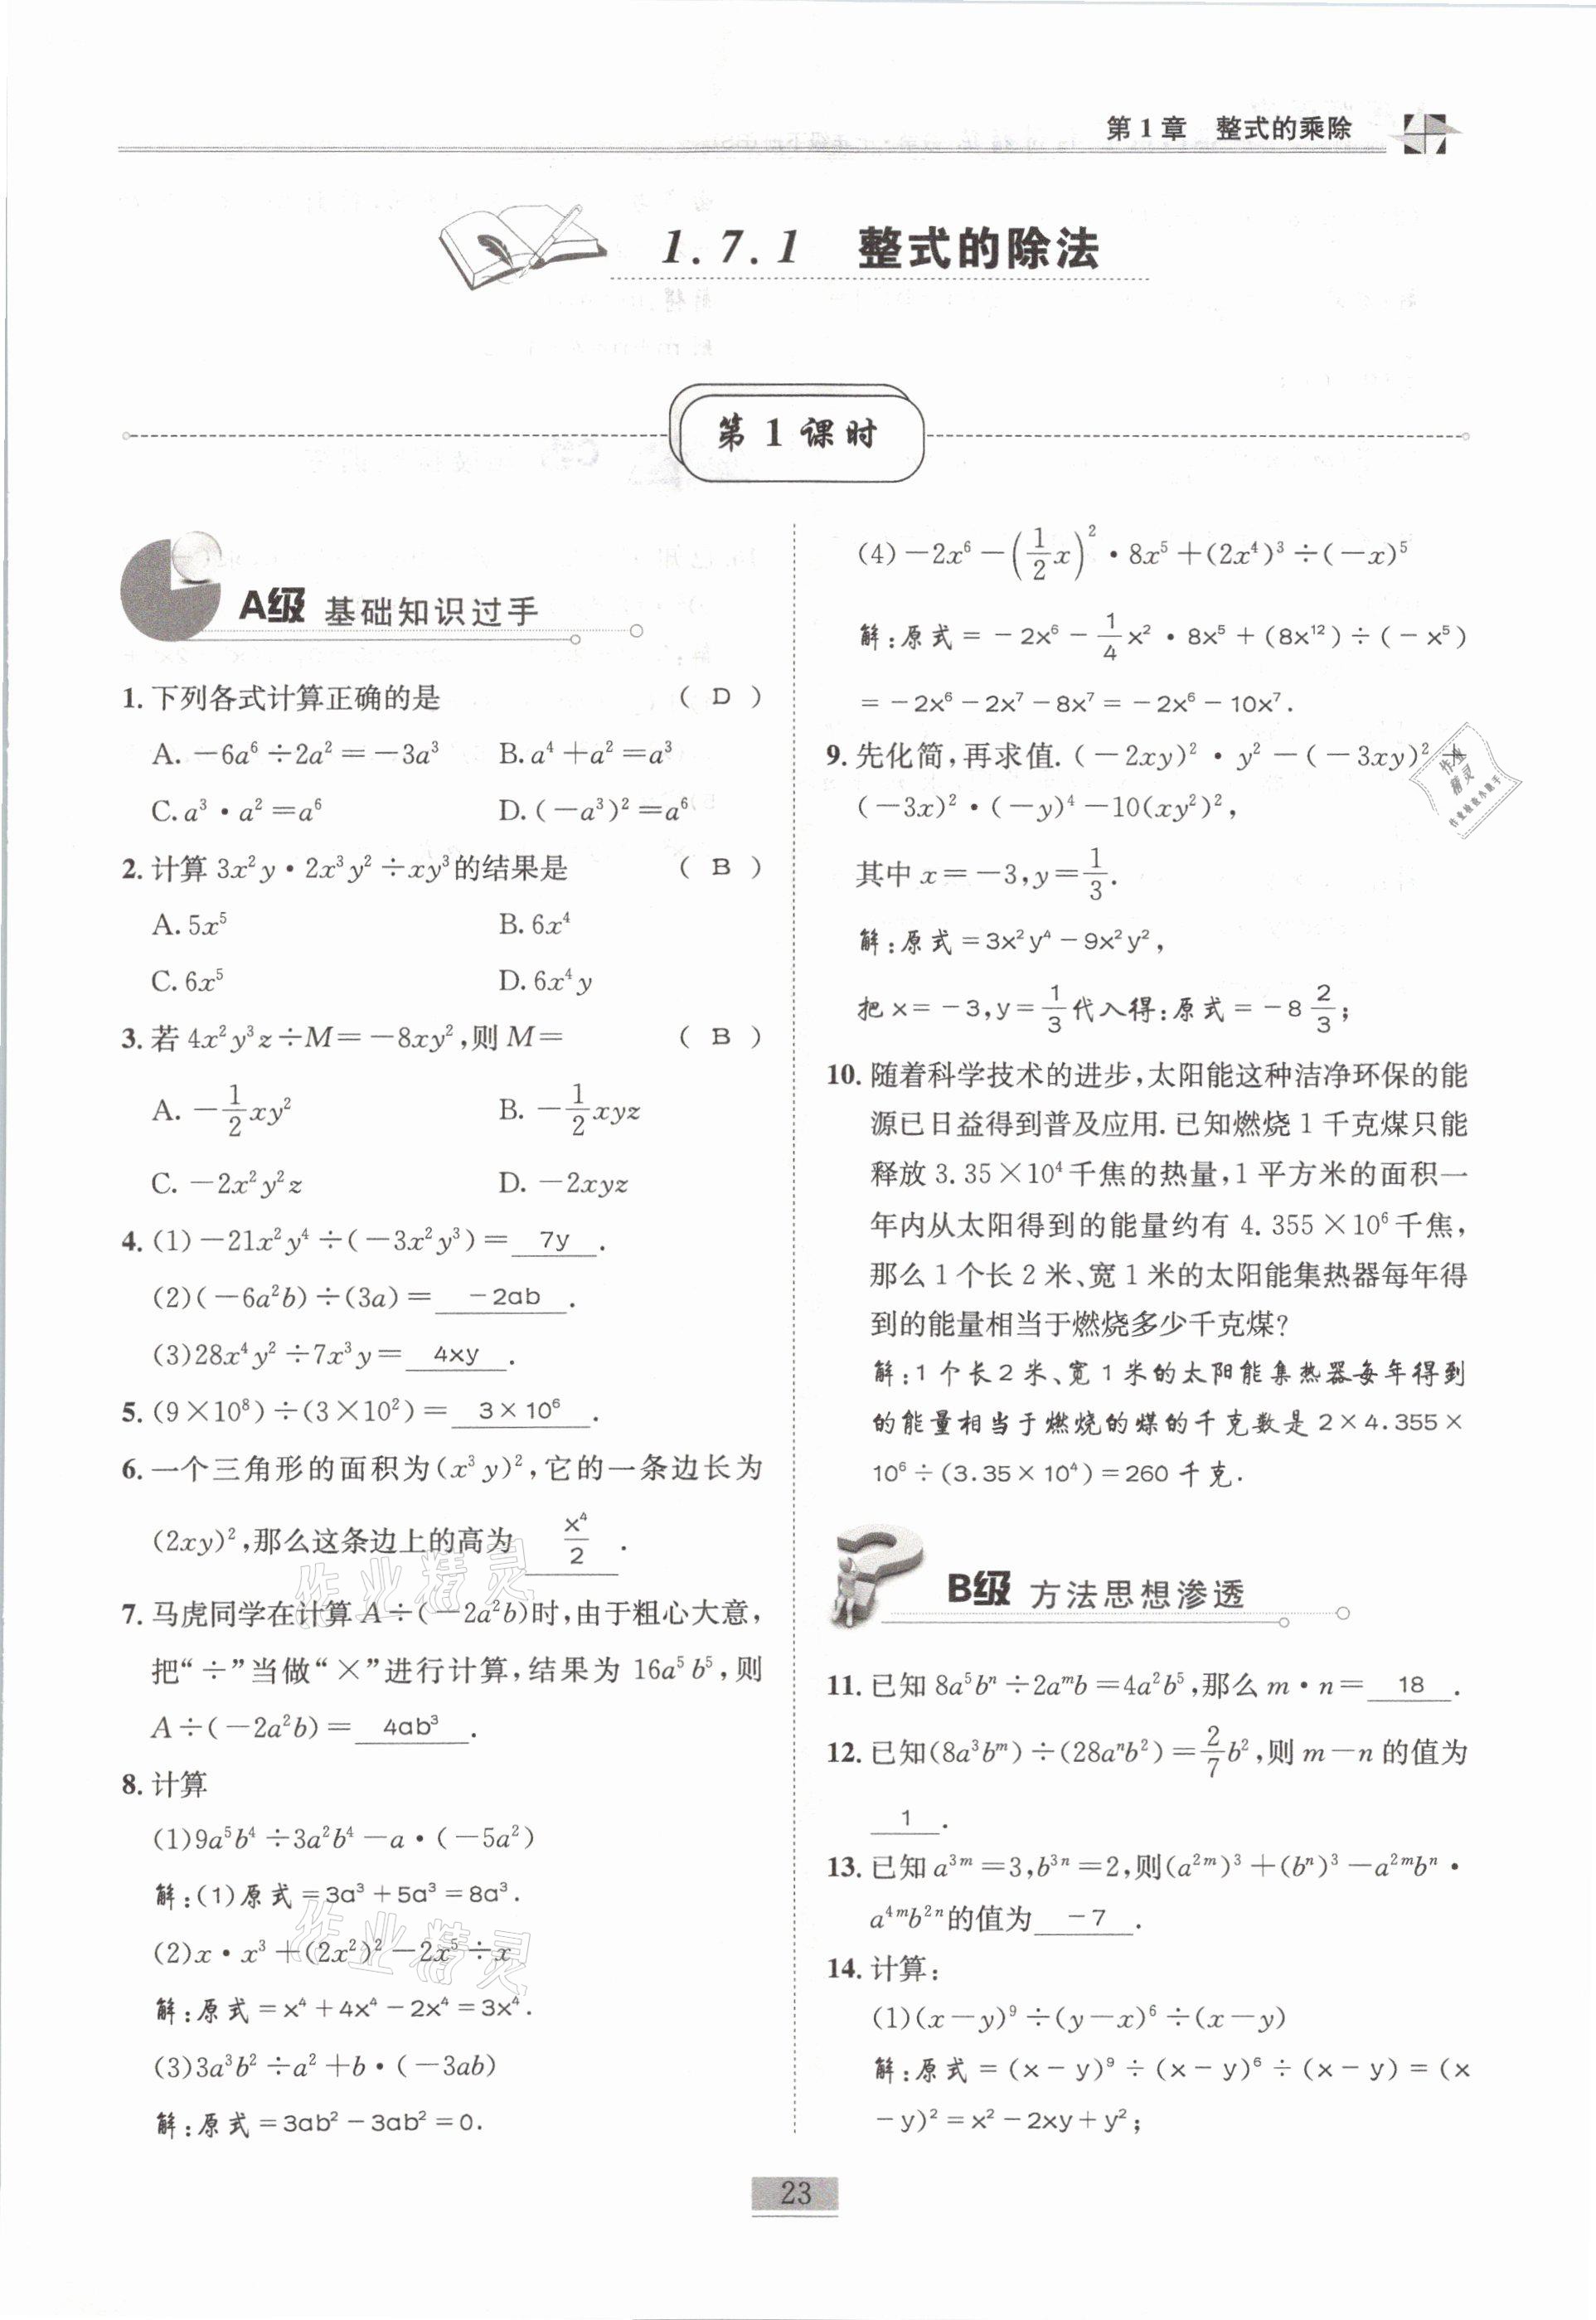 第1章 整式的乘除
1.7.1 整式的除法
第1课时
A级 基础知识过手
1. 下列各式计算正确的是 ( D )
A. －6a⁶÷2a²＝－3a³ B. a⁴＋a²＝a³
C. a³·a²＝a⁶ D. (－a³)²＝a⁶
2. 计算 3x²y·2x³y²÷xy³的结果是 ( B )
A. 5x⁵ B. 6x⁴
C. 6x⁵ D. 6x⁴y
3. 若 4x²y³z÷M＝－8xy²,则 M＝ ( B )
A. －1/2 xy² B. －1/2 xyz
C. －2x²y²z D. －2xyz
4. (1)－21x²y⁴÷(－3x²y³)＝ 7y .
(2)(－6a²b)÷(3a)＝ －2ab .
(3)28x⁴y²÷7x³y＝ 4xy .
5. (9×10⁸)÷(3×10²)＝ 3×10⁶ .
6. 一个三角形的面积为(x³y)²,它的一条边长为
(2xy)²,那么这条边上的高为 x⁴/2 .
7. 马虎同学在计算 A÷(－2a²b)时,由于粗心大意,
把“÷”当做“×”进行计算,结果为 16a⁵b⁵,则
A÷(－2a²b)＝ 4ab³ .
8. 计算
(1)9a⁵b⁴÷3a²b⁴－a·(－5a²)
解:(1)原式＝3a³＋5a³＝8a³.
(2)x·x³＋(2x²)²－2x⁵÷x
解:原式＝x⁴＋4x⁴－2x⁴＝3x⁴.
(3)3a³b²÷a²＋b·(－3ab)
解:原式＝3ab²－3ab²＝0.
(4)－2x⁶－(1/2 x)²·8x⁵＋(2x⁴)³÷(－x)⁵
解:原式＝－2x⁶－1/4 x²·8x⁵＋(8x¹²)÷(－x⁵)
＝－2x⁶－2x⁷－8x⁷＝－2x⁶－10x⁷.
9. 先化简,再求值. (－2xy)²·y²－(－3xy)²＋
(－3x)²·(－y)⁴－10(xy²)²,
其中 x＝－3,y＝1/3.
解:原式＝3x²y⁴－9x²y²,
把 x＝－3,y＝1/3代入得:原式＝－8 2/3;
10. 随着科学技术的进步,太阳能这种洁净环保的能
源已日益得到普及应用. 已知燃烧 1 千克煤只能
释放 3.35×10⁴千焦的热量,1 平方米的面积一
年内从太阳得到的能量约有 4.355×10⁶千焦,
那么 1 个长 2 米、宽 1 米的太阳能集热器每年得
到的能量相当于燃烧多少千克煤?
解:1 个长 2 米、宽 1 米的太阳能集热器每年得到
的能量相当于燃烧的煤的千克数是 2×4.355×
10⁶÷(3.35×10⁴)＝260 千克.
B级 方法思想渗透
11. 已知 8a⁵bⁿ÷2aᵐb＝4a²b⁵,那么 m·n＝ 18 .
12. 已知(8a³bᵐ)÷(28aⁿb²)＝2/7 b²,则 m－n 的值为
1 .
13. 已知 a³ᵐ＝3,b³ⁿ＝2,则(a²ᵐ)³＋(bⁿ)³－a²ᵐbⁿ·
a⁴ᵐb²ⁿ的值为 －7 .
14. 计算:
(1)(x－y)⁹÷(y－x)⁶÷(x－y)
解:原式＝(x－y)⁹÷(x－y)⁶÷(x－y)＝(x
－y)²＝x²－2xy＋y²;
23
作业精灵
作业精灵
作业精灵